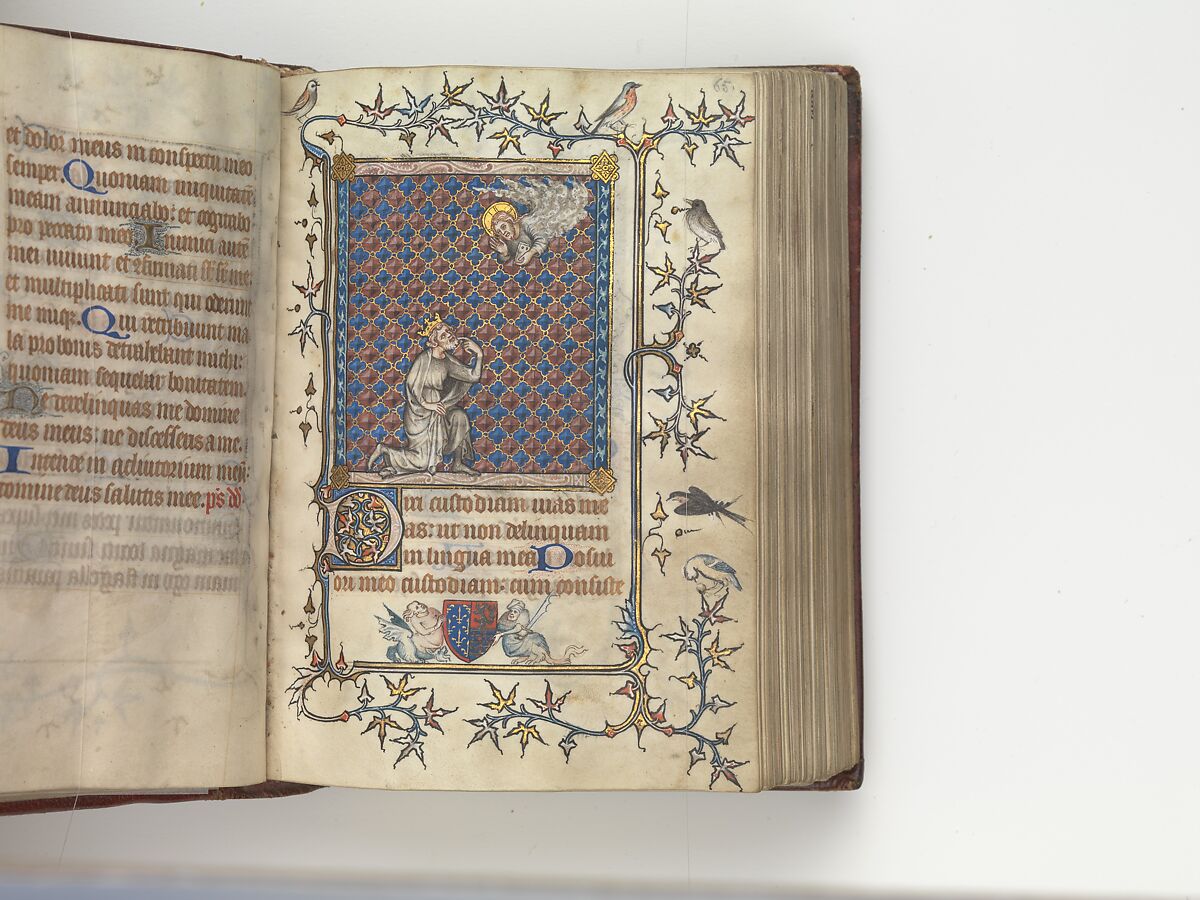 et dolor meus in conspectu meo
semper. Quoniam iniquitatē
meam annunciabo: et cogitabo
pro peccato meo. Inimici autē
mei uiuunt et
et multiplicati sunt qui oderunt
me iniq̄. Qui retribuunt ma
la pro bonis detrahebant michi:
quoniam sequebar bonitatem.
Ne derelinquas me domine
deus meus: ne discesseris a me.
Intende in adiutorium meū:
domine deus salutis mee. ps dd
65
Dixi custodiam uias me
as: ut non delinquam
in lingua mea Posui
ori meo custodiam: cum consiste